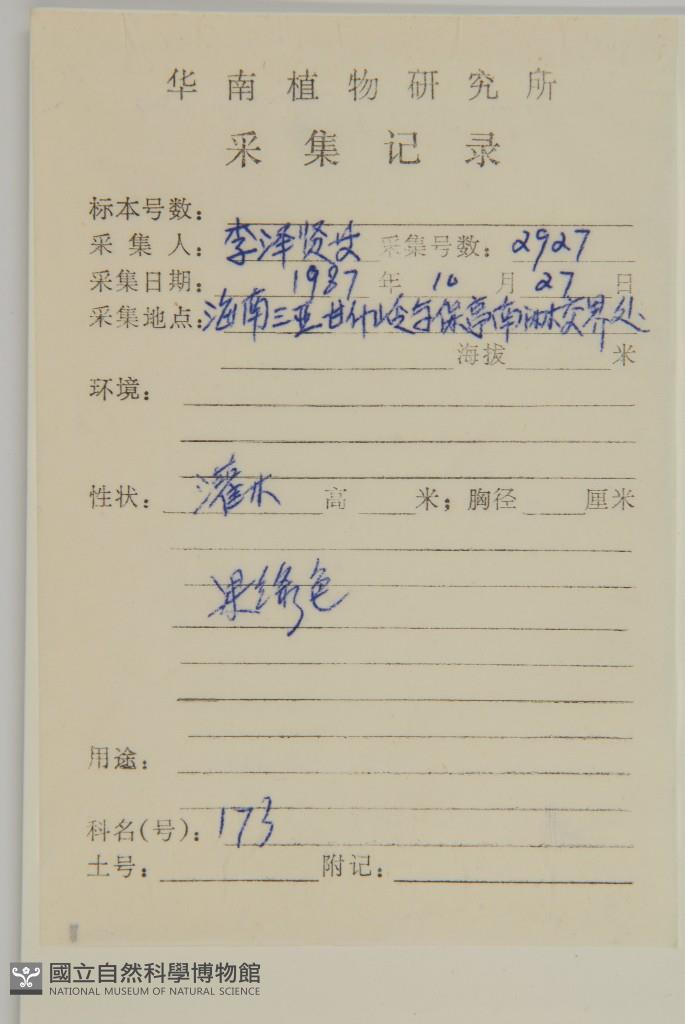 华南植物研究所
采集记录
标本号数：
采集人：李泽贤等 采集号数：2927
采集日期：1987年10月27日
采集地点：海南三亚甘什岭与保亭南淋交界处
海拔 米
环境：
性状：灌木 高 米；胸径 厘米
果绿色
用途：
科名(号)：173
土号： 附记：
國立自然科學博物館
NATIONAL MUSEUM OF NATURAL SCIENCE